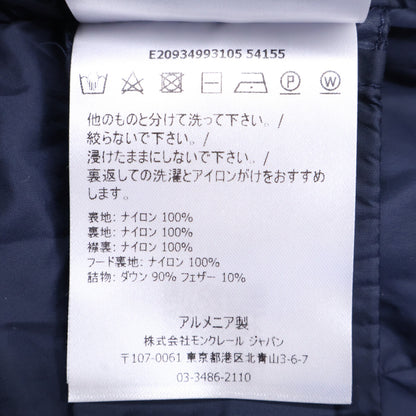 E20934993105 54155
他のものと分けて洗って下さい。/
絞らないで下さい。/
浸けたままにしないで下さい。/
裏返しての洗濯とアイロンがけをおすすめ
します。
表地: ナイロン 100%
裏地: ナイロン 100%
襟裏: ナイロン 100%
フード裏地: ナイロン 100%
詰物: ダウン 90% フェザー 10%
アルメニア製
株式会社モンクレール ジャパン
〒107-0061 東京都港区北青山3-6-7
03-3486-2110